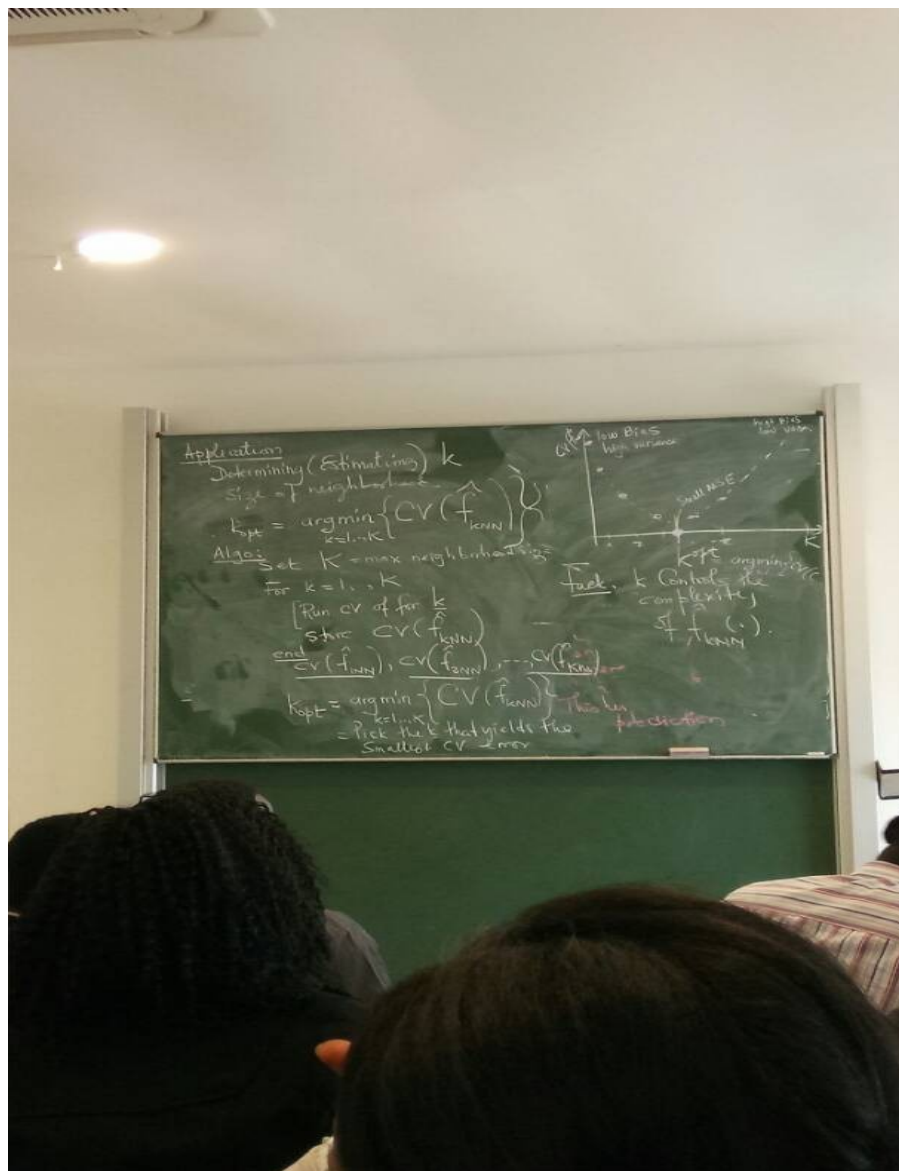 Application
Determining (Estimating) k
Size of neighborhood
k_opt = argmin_{k=1,..,K} { CV(f̂_kNN) }
Algo:
Set K = max neighborhood size
For k=1,.., K
[Run CV of for k
store CV(f̂_kNN)
end
CV(f̂_1NN), CV(f̂_2NN), ..., CV(f̂_KNN)
k_opt = argmin_{k=1...K} { CV(f̂_kNN) }
= Pick the k that yields the
smallest CV error
This is
prediction
low Bias
high variance
High Bias
low
Small MSE
K
k opt = argmin
Fact: k Controls the
complexity
of f̂_kNN(.).